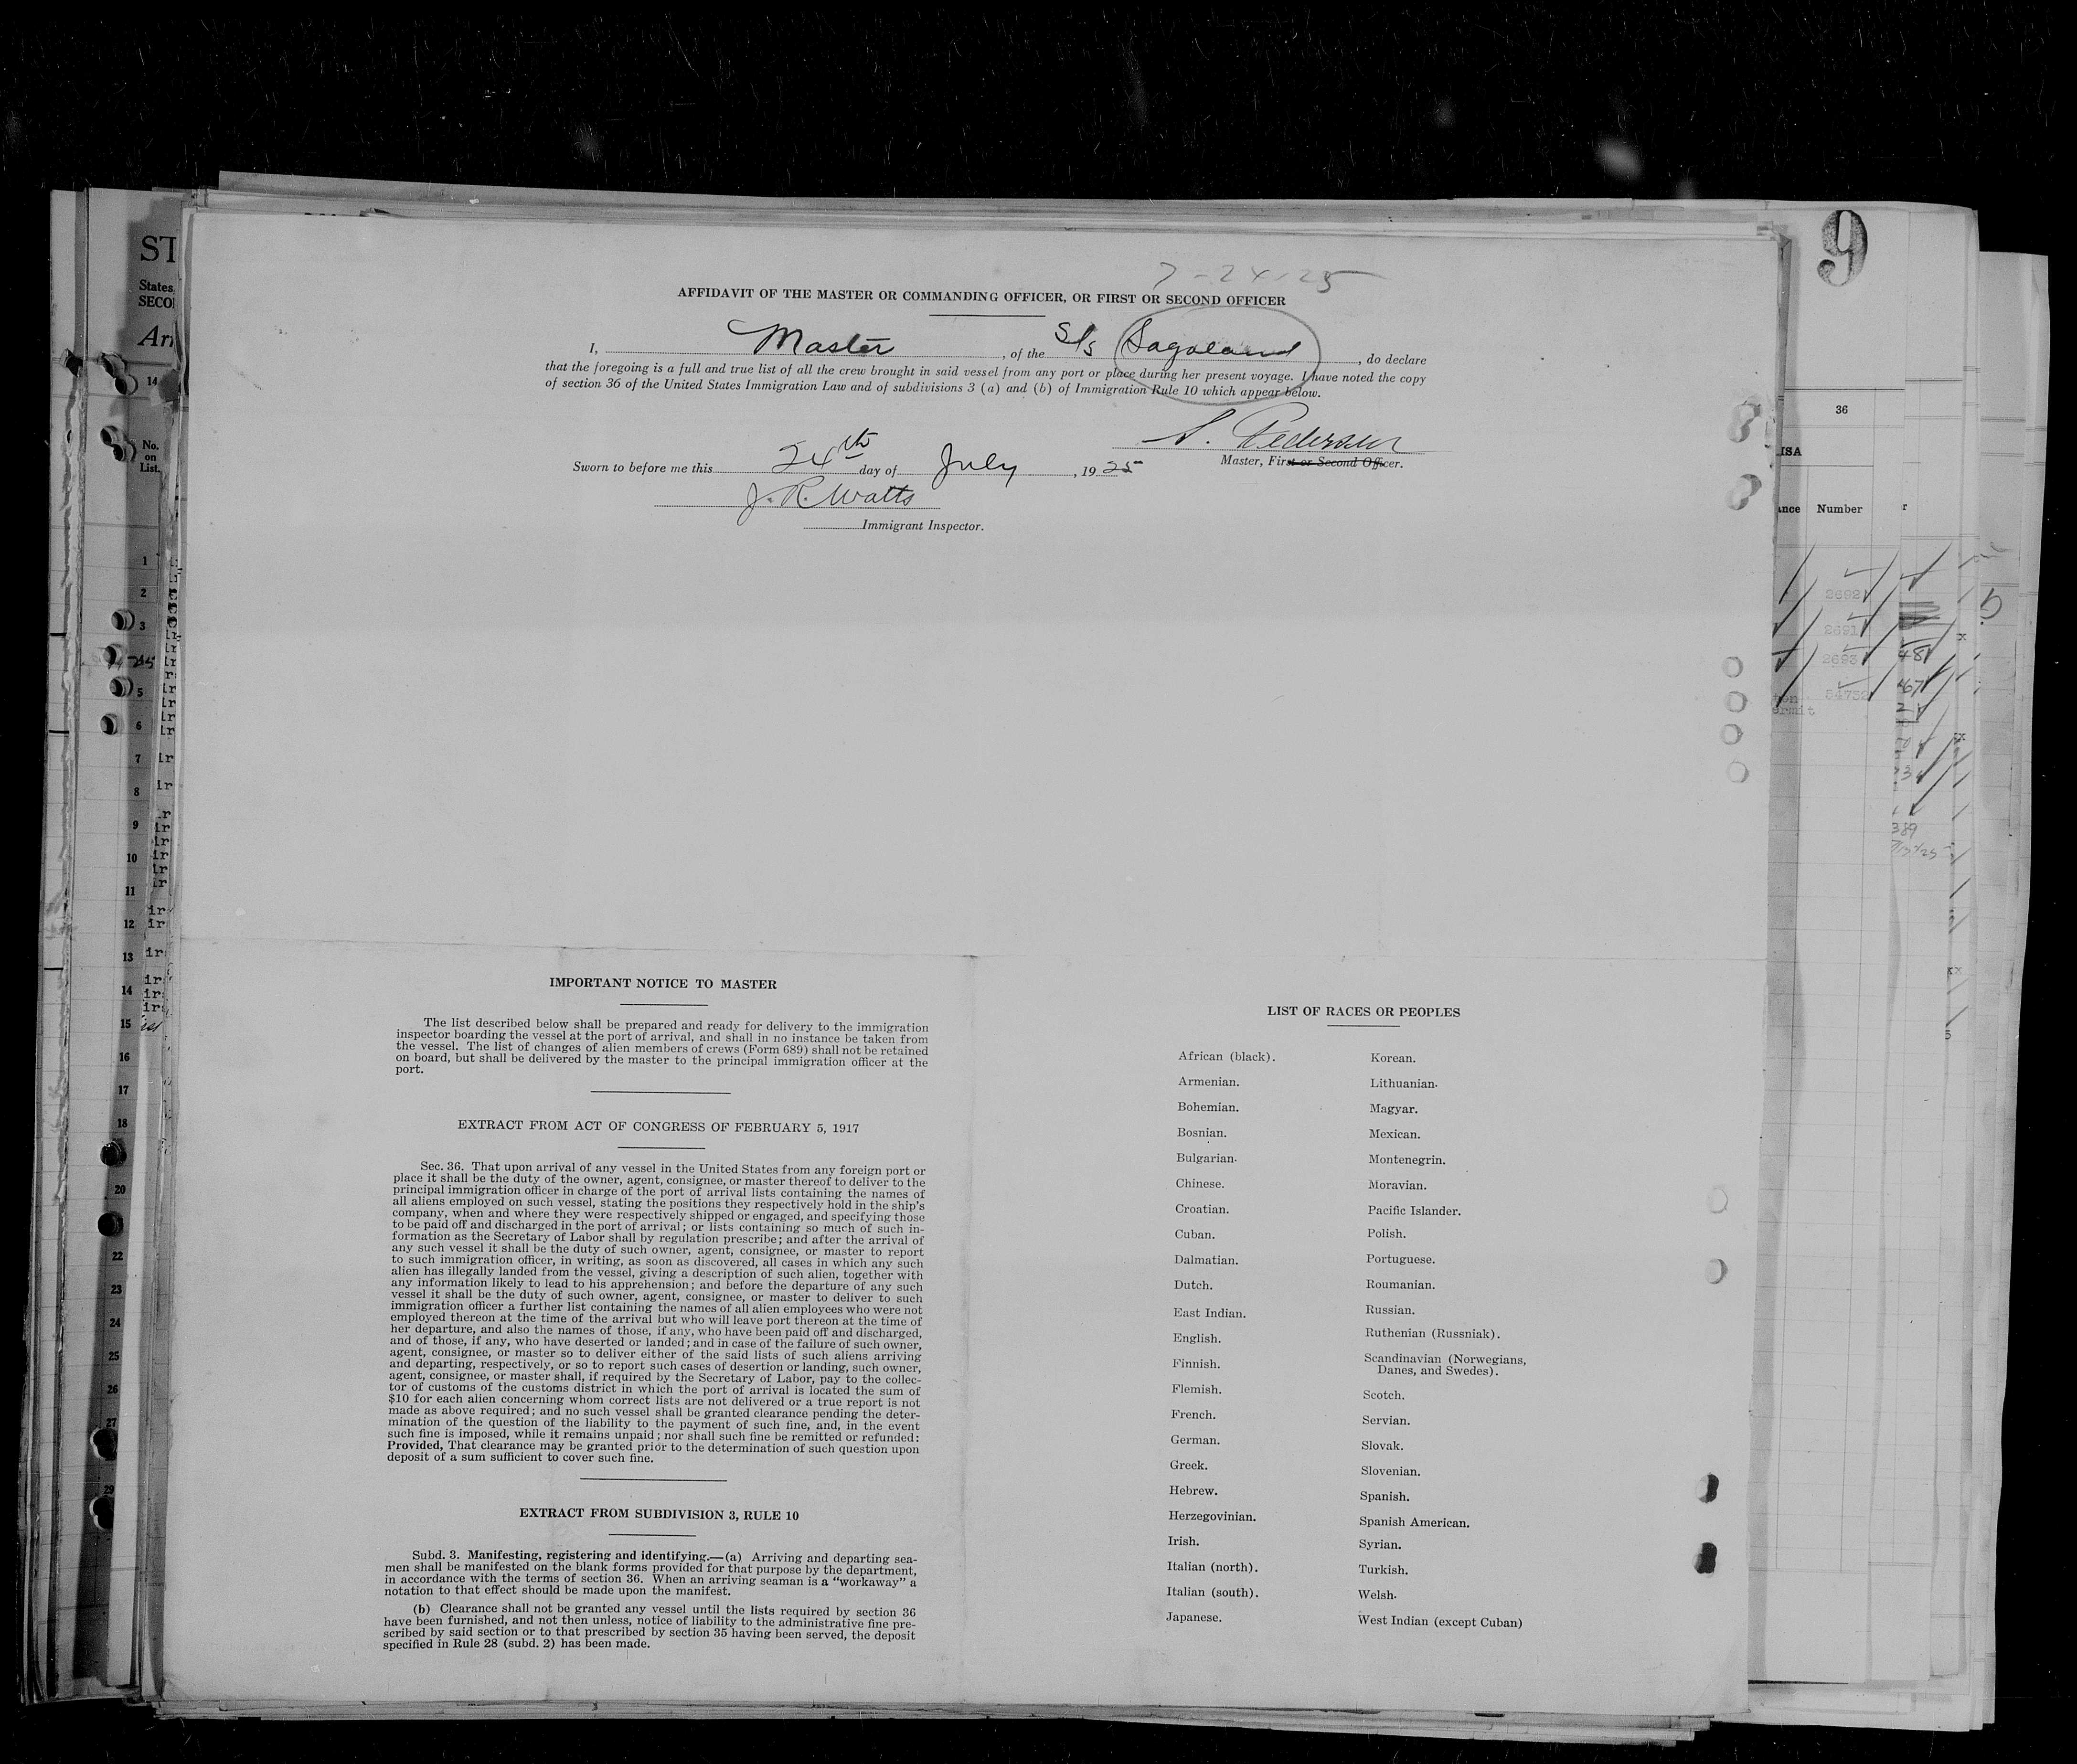 7-24-25
AFFIDAVIT OF THE MASTER OR COMMANDING OFFICER, OR FIRST OR SECOND OFFICER
I, Master, of the S/S Sagaland, do declare
that the foregoing is a full and true list of all the crew brought in said vessel from any port or place during her present voyage. I have noted the copy
of section 36 of the United States Immigration Law and of subdivisions 3 (a) and (b) of Immigration Rule 10 which appear below.
S. Pedersen
Master, First or Second Officer.
Sworn to before me this 24th day of July, 1925
J. R. Watts
Immigrant Inspector.
IMPORTANT NOTICE TO MASTER
The list described below shall be prepared and ready for delivery to the immigration
inspector boarding the vessel at the port of arrival, and shall in no instance be taken from
the vessel. The list of changes of alien members of crews (Form 689) shall not be retained
on board, but shall be delivered by the master to the principal immigration officer at the
port.
EXTRACT FROM ACT OF CONGRESS OF FEBRUARY 5, 1917
Sec. 36. That upon arrival of any vessel in the United States from any foreign port or
place it shall be the duty of the owner, agent, consignee, or master thereof to deliver to the
principal immigration officer in charge of the port of arrival lists containing the names of
all aliens employed on such vessel, stating the positions they respectively hold in the ship's
company, when and where they were respectively shipped or engaged, and specifying those
to be paid off and discharged in the port of arrival; or lists containing so much of such in-
formation as the Secretary of Labor shall by regulation prescribe; and after the arrival of
any such vessel it shall be the duty of such owner, agent, consignee, or master to report
to such immigration officer, in writing, as soon as discovered, all cases in which any such
alien has illegally landed from the vessel, giving a description of such alien, together with
any information likely to lead to his apprehension; and before the departure of any such
vessel it shall be the duty of such owner, agent, consignee, or master to deliver to such
immigration officer a further list containing the names of all alien employees who were not
employed thereon at the time of the arrival but who will leave port thereon at the time of
her departure, and also the names of those, if any, who have been paid off and discharged,
and of those, if any, who have deserted or landed; and in case of the failure of such owner,
agent, consignee, or master so to deliver either of the said lists of such aliens arriving
and departing, respectively, or so to report such cases of desertion or landing, such owner,
agent, consignee, or master shall, if required by the Secretary of Labor, pay to the collec-
tor of customs of the customs district in which the port of arrival is located the sum of
$10 for each alien concerning whom correct lists are not delivered or a true report is not
made as above required; and no such vessel shall be granted clearance pending the deter-
mination of the question of the liability to the payment of such fine, and, in the event
such fine is imposed, while it remains unpaid; nor shall such fine be remitted or refunded:
Provided, That clearance may be granted prior to the determination of such question upon
deposit of a sum sufficient to cover such fine.
EXTRACT FROM SUBDIVISION 3, RULE 10
Subd. 3. Manifesting, registering and identifying.—(a) Arriving and departing sea-
men shall be manifested on the blank forms provided for that purpose by the department,
in accordance with the terms of section 36. When an arriving seaman is a "workaway" a
notation to that effect should be made upon the manifest.
(b) Clearance shall not be granted any vessel until the lists required by section 36
have been furnished, and not then unless, notice of liability to the administrative fine pre-
scribed by said section or to that prescribed by section 35 having been served, the deposit
specified in Rule 28 (subd. 2) has been made.
LIST OF RACES OR PEOPLES
African (black).
Armenian.
Bohemian.
Bosnian.
Bulgarian.
Chinese.
Croatian.
Cuban.
Dalmatian.
Dutch.
East Indian.
English.
Finnish.
Flemish.
French.
German.
Greek.
Hebrew.
Herzegovinian.
Irish.
Italian (north).
Italian (south).
Japanese.
Korean.
Lithuanian.
Magyar.
Mexican.
Montenegrin.
Moravian.
Pacific Islander.
Polish.
Portuguese.
Roumanian.
Russian.
Ruthenian (Russniak).
Scandinavian (Norwegians,
Danes, and Swedes).
Scotch.
Servian.
Slovak.
Slovenian.
Spanish.
Spanish American.
Syrian.
Turkish.
Welsh.
West Indian (except Cuban)
ST
States
SECO
14
No.
on
List.
1
2
3
5
6
7
8
9
10
11
12
13
14
15
16
17
18
20
22
23
24
25
26
27
29
9
36
Number
2692
2691
2693
54752
48
67
389